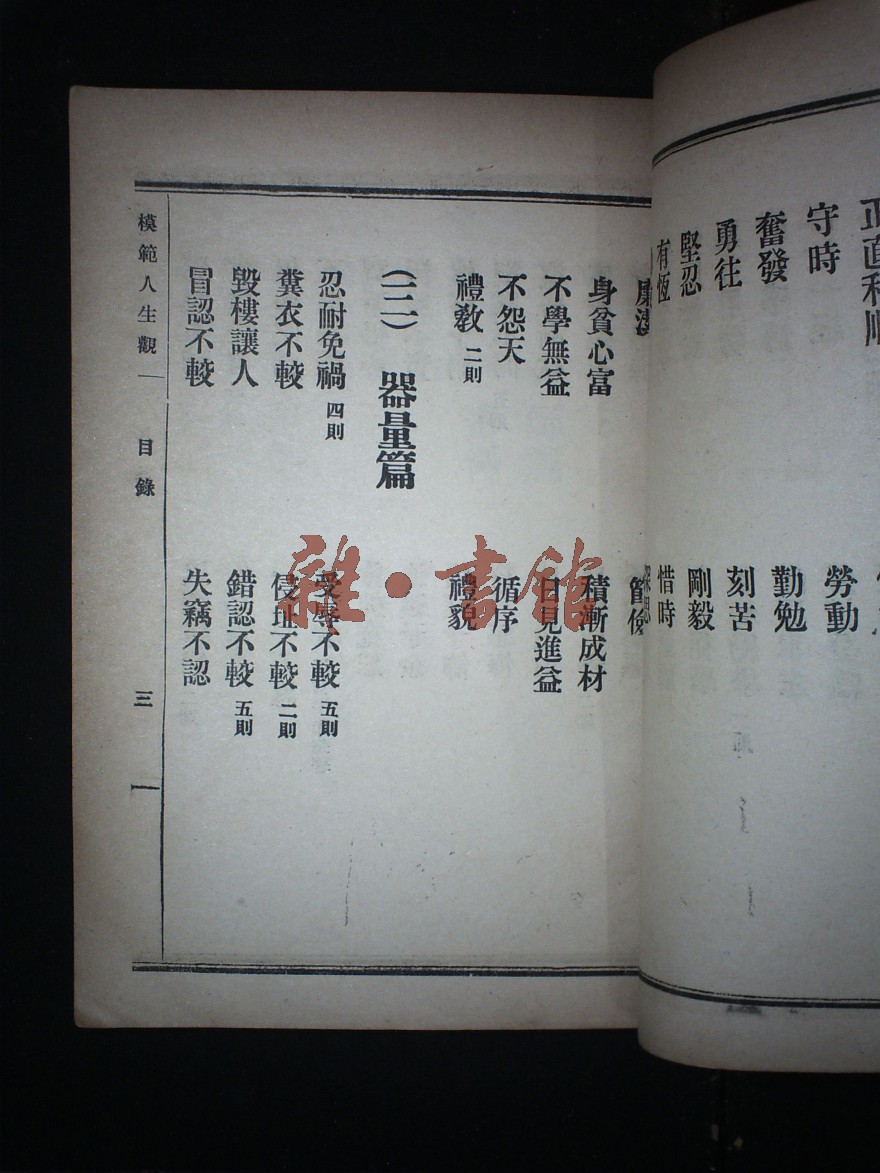 正直和順
守時 勞動
奮發 勤勉
勇往 刻苦
堅忍 剛毅
有恆 惜時
身貧心富 積漸成材
不學無益 日見進益
不怨天 循序
禮教 二則 禮貌
(三) 器量篇
忍耐免禍 四則 受辱不較 五則
糞衣不較 侵址不較 二則
毀樓讓人 錯認不較 五則
冒認不較 失竊不認
模範人生觀 目錄 三
雜·書館